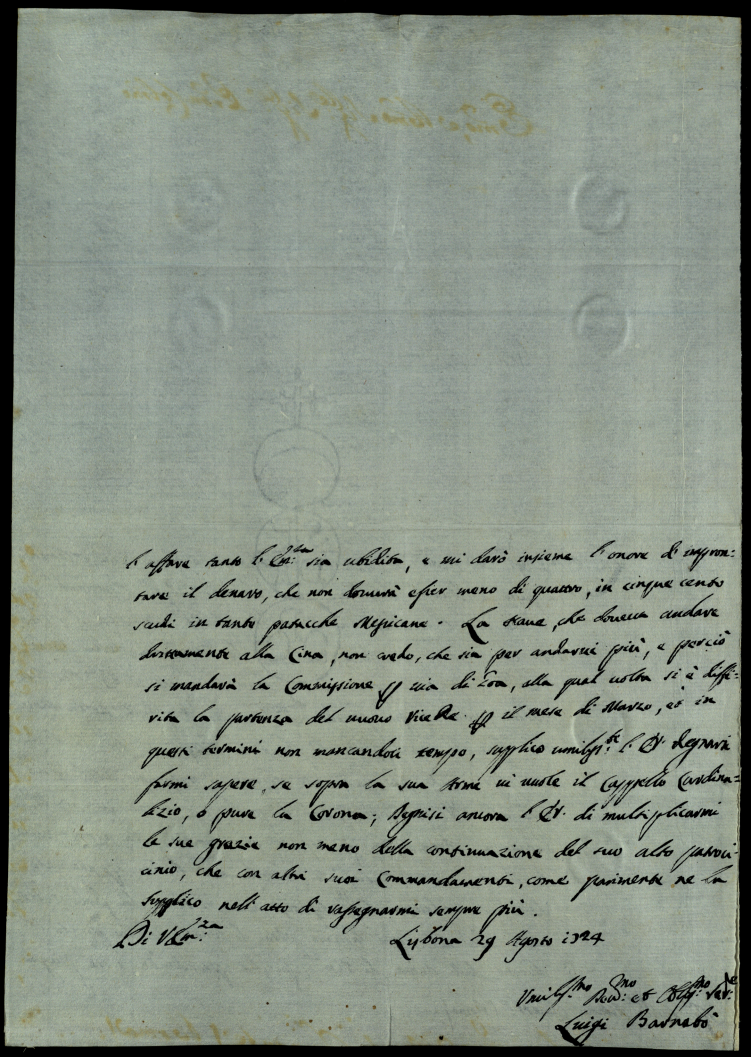 l'affare tanto l'Em.za sia ubidita, e mi darò insieme l'onore di appron=
tare il denaro, che non dovrà esser meno di quattro, in cinque cento
scudi in tante patacche Messicane. La Nave, che doveva andare
direttamente alla Cina, non credo, che sia per andarvi più, e perciò
si mandarà la Commissione p via di Goa, alla qual volta si è diffe=
rita la partenza del nuovo ViceRe p il mese di Marzo, et in
questi termini non mancandoci tempo, supplico umilm.te l'E.V. degnarsi
farmi sapere, se sopra la sua Arme vi vuole il Cappello Cardina=
lizio, o pure la Corona; Degnisi ancora l'E.V. di multiplicarmi
le sue grazie non meno della continuazione del suo alto patroci=
cinio, che con altri suoi Commandamenti, come parimente ne la
supplico nell'atto di rassegnarmi sempre più.
Di V.Em.za Lisbona 29 Agosto 1724
Umiliss.mo Dev.mo et Obblig.mo Ser.re
Luigi Barnabò